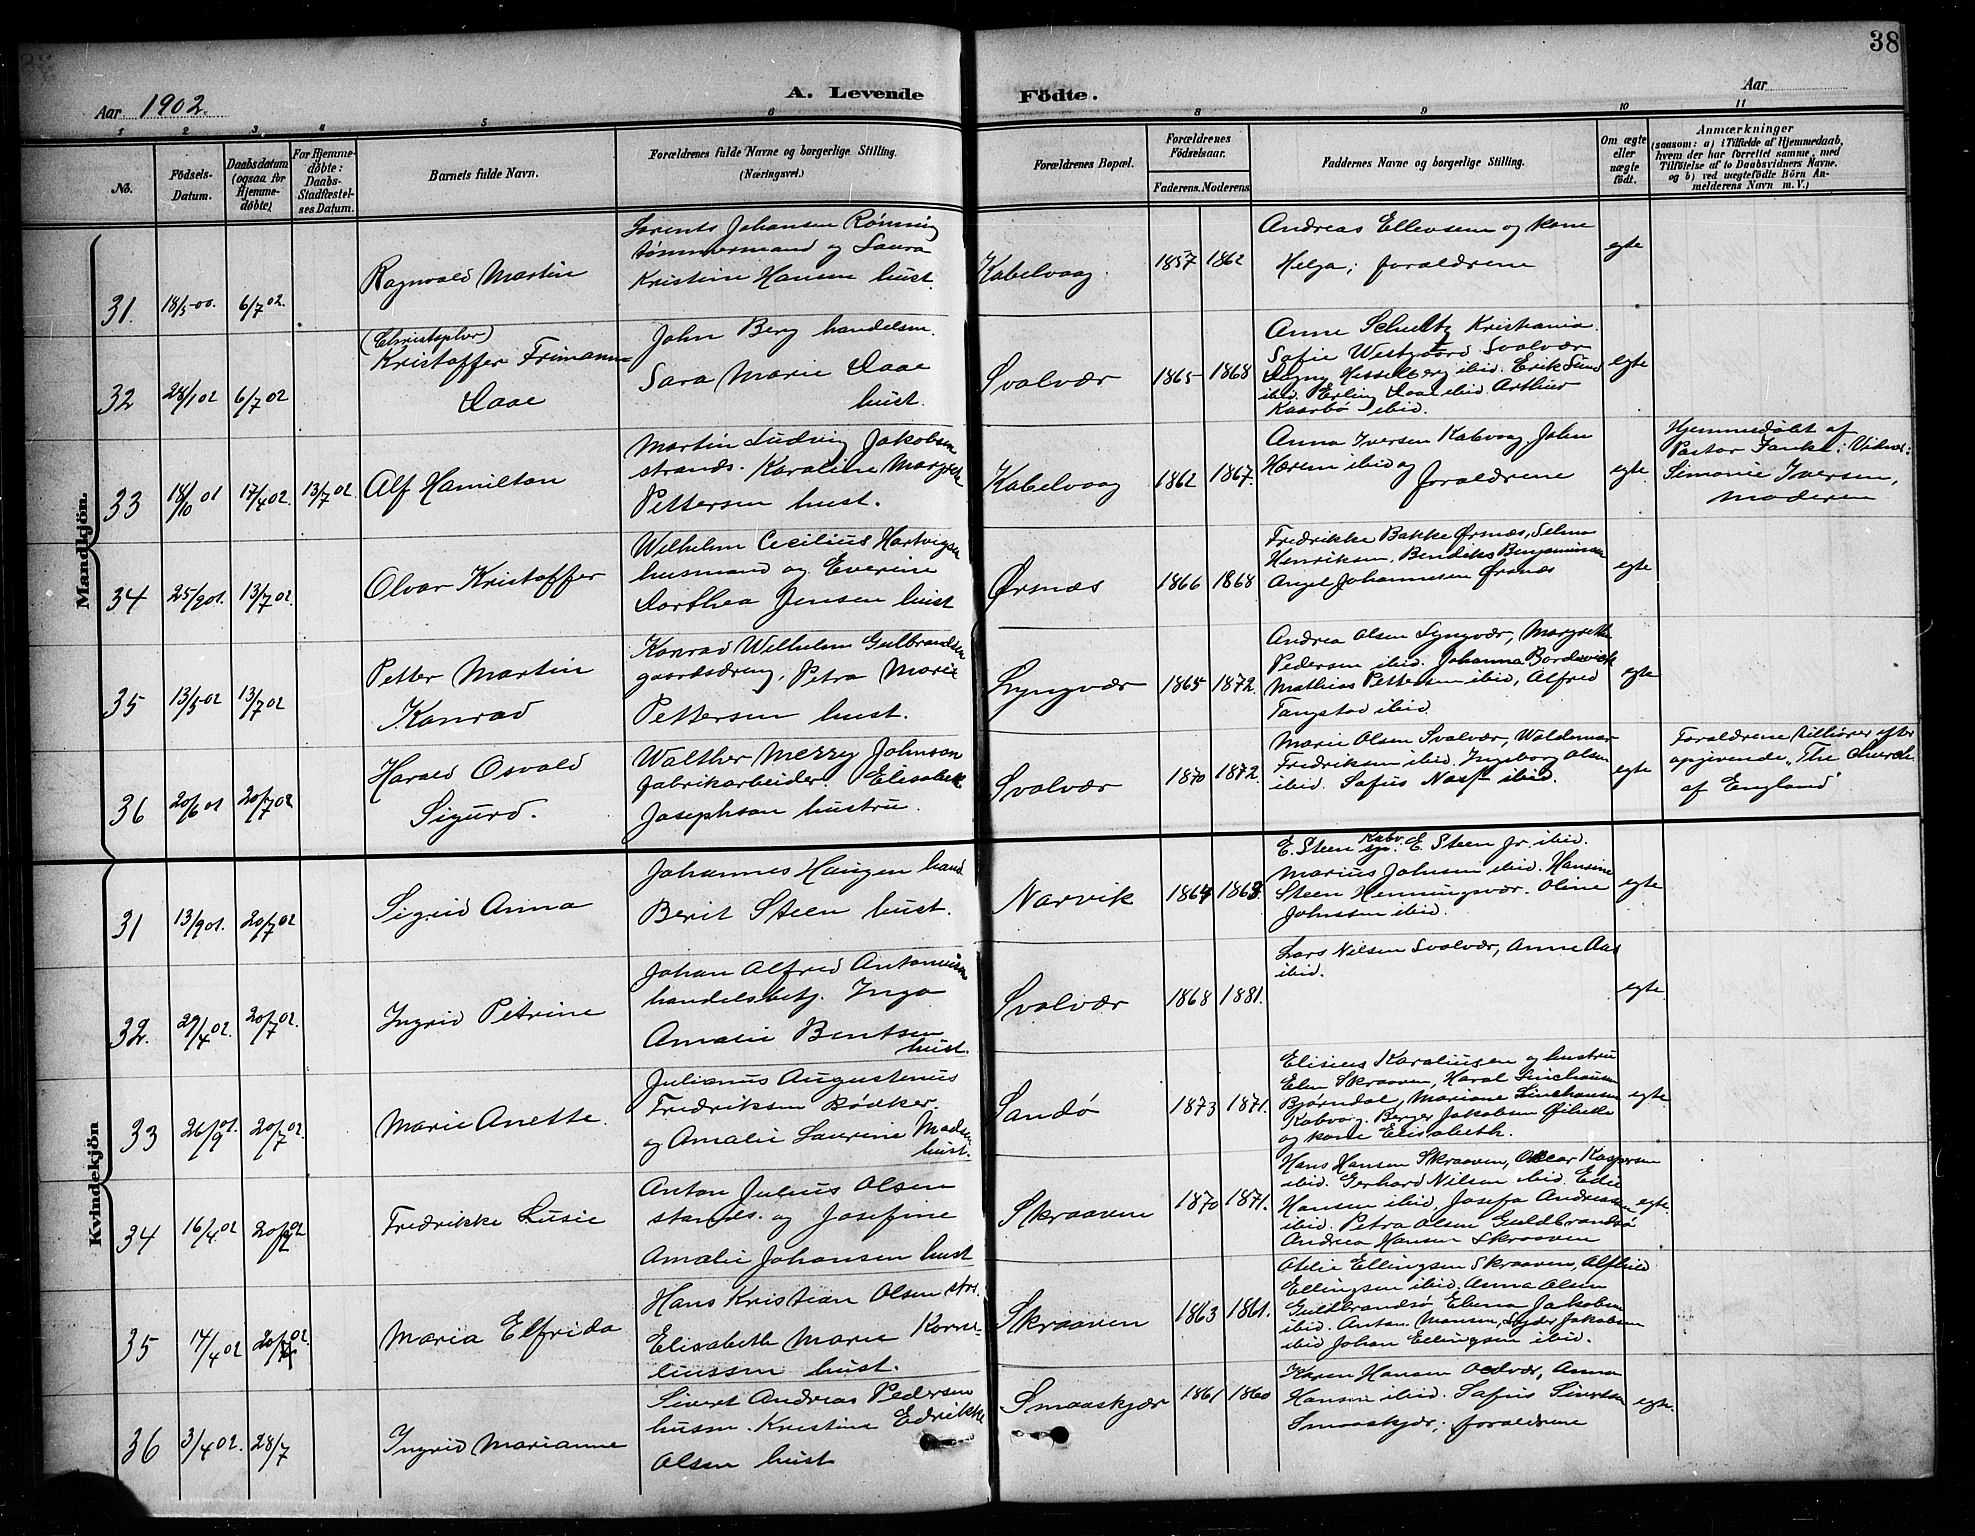 38
Aar 1902.
A. Levende Födte.
Aar
1 2 3. 4 5 6 8 9 10 11
No.
Födsels-Datum.
Daabsdatum (ogsaa for Hjemme-döbte)
For Hjemme-döbte: Daabs-Stadfæstel-ses Datum.
Barnets fulde Navn.
Forældrenes fulde Navne og borgerlige Stilling.
(Næringsvei.)
Forældrenes Bopæl.
Forældrenes Födselsaar.
Faderens. Moderens.
Faddernes Navne og borgerlige Stilling.
Om ægte eller uægte födt.
Anmærkninger
(saasom: a) i Tilfælde af Hjemmedaab,
hvem der har forrettet samme, med
Tilföielse af to Daabsvidners Navne,
og b) ved uægtefödte Börn An-
melderens Navn m. V.)
Mandkjön.
31. 18/5-00. 6/7 02.
Ragnvald Martin
Lorents Johansen Rönning
tömmermand og Laura
Kristine Hansen hust.
Kabelvaag 1857 1862
Andreas Ellevsen og kone
Helga; forældrene
egte
32 28/1 02 6/7 02
(Christopher)
Kristoffer Frimann
Daae
John Berg handelsm.
Sara Marie Daae
hust.
Svolvær 1865 1868
Anne Schultz Kristiania.
Sofie Westgaard Svolvær
Dagny Hesselberg ibid. Erik Lund
ibid. Erling Daae ibid. Arthur
Kaarbö ibid.
egte
33 18/10 01 17/4 02. 13/7 02.
Alf Hamilton
Martin Ludvig Jakobsen
strands. Karoline Margrete
Pettersen hust.
Kabelvaag 1862 1867.
Anna Iversen Kabvaag John
Hærem ibid og forældrene
egte.
Hjemmedöbt af
Pastor Funke: Vidner:
Simonie Iversen,
moderen
34 25/9 01. 13/7 02.
Olvar Kristoffer
Wilhelm Cecilius Hartvigsen
husmand og Everine
Dorthea Jensen hust
Ørsnæs 1866 1868
Fredrikke Bakke Ørsnæs, Selma
Henriksen, Bendiks Benjaminsen
Angel Johannesen Ørsnæs
egte
35 13/5 02 13/7 02
Petter Martin
Konrad
Konrad Wilhelm Gulbrandsen
gaardsdreng. Petra Marie
Pettersen hust.
Lyngvær 1865 1872.
Andrea Olsen Lyngvær, Margrethe
Pedersen ibid. Johanna Bordevick
Mathias Pettersen ibid, Alfred
Tangstad ibid
egte
36 20/6 01 20/7 02
Harald Osvald
Sigurd.
Walther Merry Johnson
fabrikarbeider. Elisabeth
Josephson hustru.
Svolvær 1870 1872.
Marie Olsen Svolvær, Waldemar
Fredriksen ibid. Ingeborg Olsen
ibid. Sofus Næss ibid.
egte
Forældrene tilhörer efter
opgivende „The Church
of England"
Kvindekjön
31 13/9 01. 20/7 02
Sigrid Anna
Johannes Haugen hand
Berit Steen hust.
Narvik 1864 1863.
E. Steen Kabv. E Steen Jr. ibid.
Marius Johnsen ibid. Hansine
Steen Henningsvær. Oline
Johnsen ibid.
egte
32. 29/4 02. 20/7 02.
Ingrid Petrine
Johan Alfred Antonius
handelsbetj. Inga
Amalie Bentsen
hust.
Svolvær 1868 1881.
Lars Nilsen Svolvær, Anne Aas
ibid.
egte.
33 26/9 01. 20/7 02.
Marie Anette.
Julianus Augustinus
Fredriksen Bödker
og Amalie Laurine Madsen
hust.
Sandö 1873 1871.
Elisæus Karoliussen og hustru
Elen Skraaven, Haral Linchausen
Björndal, Mariane Linchausen
Kabvaag. Berger Jakobsen
og kone Elisabeth.
egte.
34 16/4 02 20/7 02
Fredrikke Lusie
Anton Julius Olsen
stands. og Josefine
Amalie Johansen hust
Skraaven 1870 1871.
Hans Hansen Skraaven, Oscar Kaspersen
ibid. Gerhard Nilsen ibid. Edie
Hansen ibid. Josefa Andreassen
ibid. Petra Olsen Guldbrandsö
Andrea Hansen Skraaven
egte.
35 17/4 02 20/7 02
Maria Elfrida
Hans Kristian Olsen str.
Elisabeth Marie Korne-
liussen hust.
Skraaven 1863 1861.
Otelie Ellingsen Skraaven, Alfhild
Ellingsen ibid. Anna Olsen
Guldbrandsö Elena Jakobsen
ibid. Anton Monsen, Lyder Jakobsen
ibid Johan Ellingsen ibid.
36 3/4 02. 28/7
Ingrid Marianne
Sivert Andreas Pedersen
husm. Kristine Edrikke
Olsen hust
Smaaskjær 1861 1860
Karen Hansen Oedvær, Anna
Hansen ibid. Sofus Sivertsen
Smaaskjær; forældrene
egte.